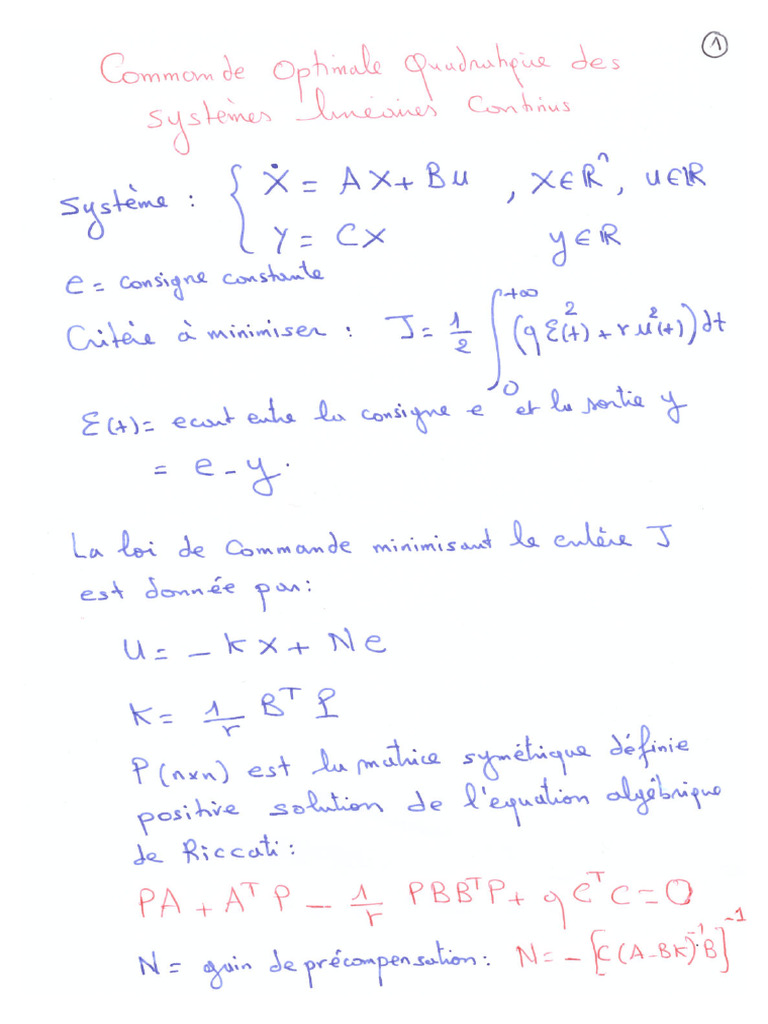 ①
Commande Optimale Quadratique des
systèmes linéaires Continus
Système : { Ẋ = AX + Bu , X ∈ ℝⁿ, u ∈ ℝ
Y = CX y ∈ ℝ
e = consigne constante
Critère à minimiser : J = 1/2 ∫₀^{+∞} (q ε²(t) + r u²(t)) dt
ε(t) = ecart entre la consigne e et la sortie y
= e - y.
La loi de Commande minimisant le critère J
est donnée par :
U = - K X + N e
K = 1/r Bᵀ P
P (n×n) est la matrice symétrique définie
positive solution de l'equation algébrique
de Riccati :
PA + Aᵀ P - 1/r PBBᵀP + q CᵀC = 0
N = gain de précompensation : N = - [C (A - BK)⁻¹ B]⁻¹